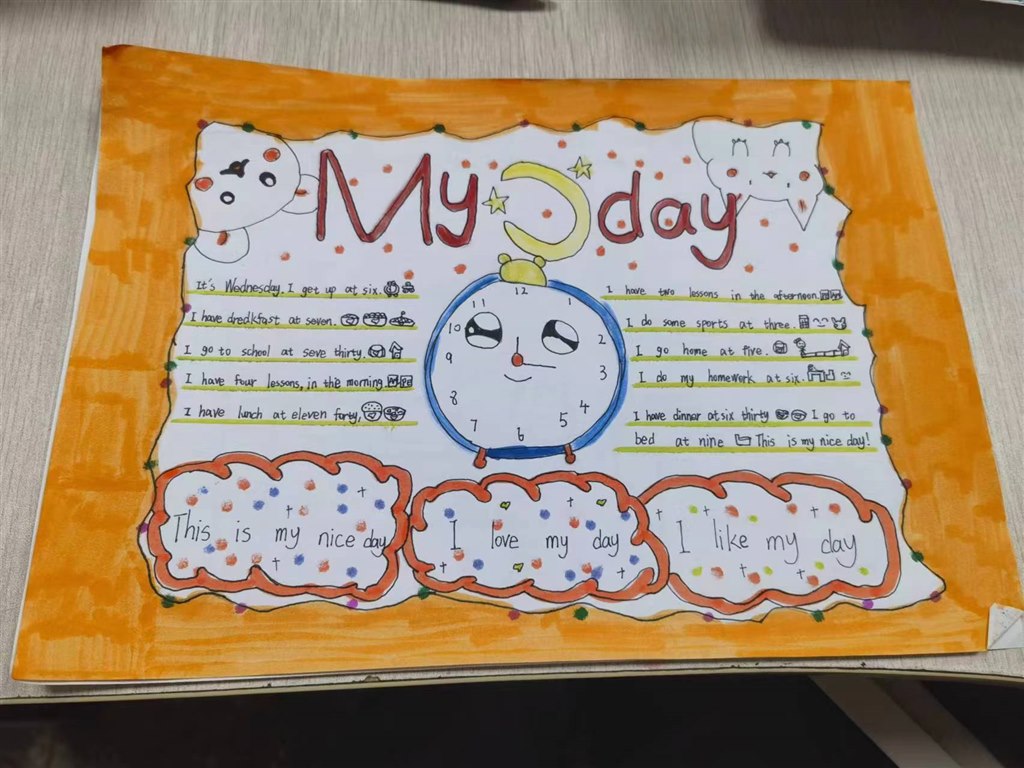 My day
It's Wednesday. I get up at six.
I have dredkfast at seven.
I go to school at seve thirty.
I have four lessons, in the morning.
I have lunch at eleven forty,
11 12 1
10 2
9 3
8 4
7 6 5
I have two lessons in the afternoon.
I do some sports at three.
I go home at five.
I do my homework at six.
I have dinner at six thirty I go to
bed at nine This is my nice day!
This is my nice day
I love my day
I like my day